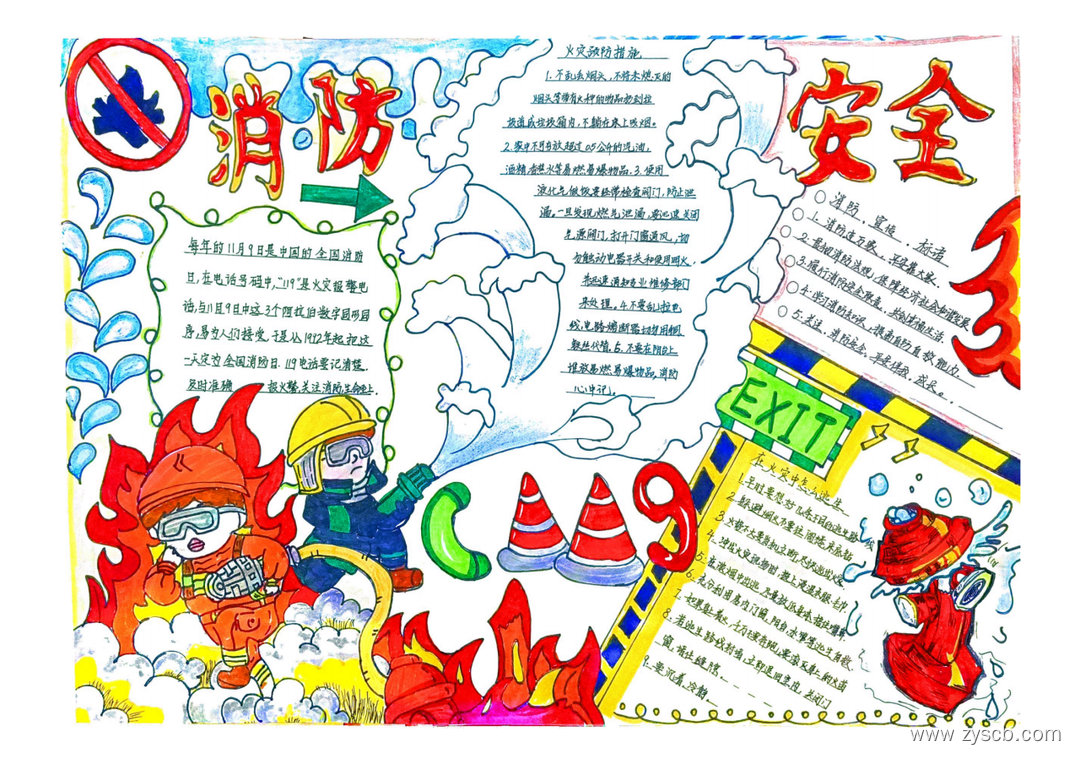 消防
安全
每年的11月9日是中国的全国消防
日，在电话号码中，“119”是火灾报警电
话，与11月9日中这3个阿拉伯数字因形同
序，易为人们接受。于是从1992年起，把这
一天定为全国消防日。119电话要记清楚，
及时准确 报火警，关注消防生命至上。
火灾预防措施
1. 不乱丢烟头，不将未燃灭的
烟头等带有火种的物品扔到垃
圾道或垃圾箱内，不躺在床上吸烟。
2. 家中不可存放超过0.5公升的汽油，
酒精 等易燃易爆物品。3. 使用
液化气做饭要经常检查阀门，防止泄
漏。一旦发现燃气泄漏，要迅速关闭
气源阀门，打开门窗通风，切
勿触动电器开关和使用明火，
并迅速通知专业维修部门
来处理。4. 不要乱拉电
线，电路熔断器切勿用铜
铁丝代替。5. 不要在阳台上
堆放易燃易爆物品。消防
心中记。
消防、宣传、标语
1. 消防连万家，平安靠大家。
2. 贯彻消防法规，保障经济社会和谐发展
3. 履行消防安全职责，共创
4. 学习消防知识，提高自防自救能力
5. 关注 消防安全，
EXIT
119
在火灾中怎么逃生
1. 平时要想好几条不同的逃生路线
2. 躲避烟火不要往阁楼、床底
3. 火势不大要当机立断
4.
5. 在浓烟中
6. 充分利用
7.
8. 若逃生路线封锁，立即退回室内，关闭门
窗，堵住缝隙
9. 要沉着、冷静
www.zyscb.com